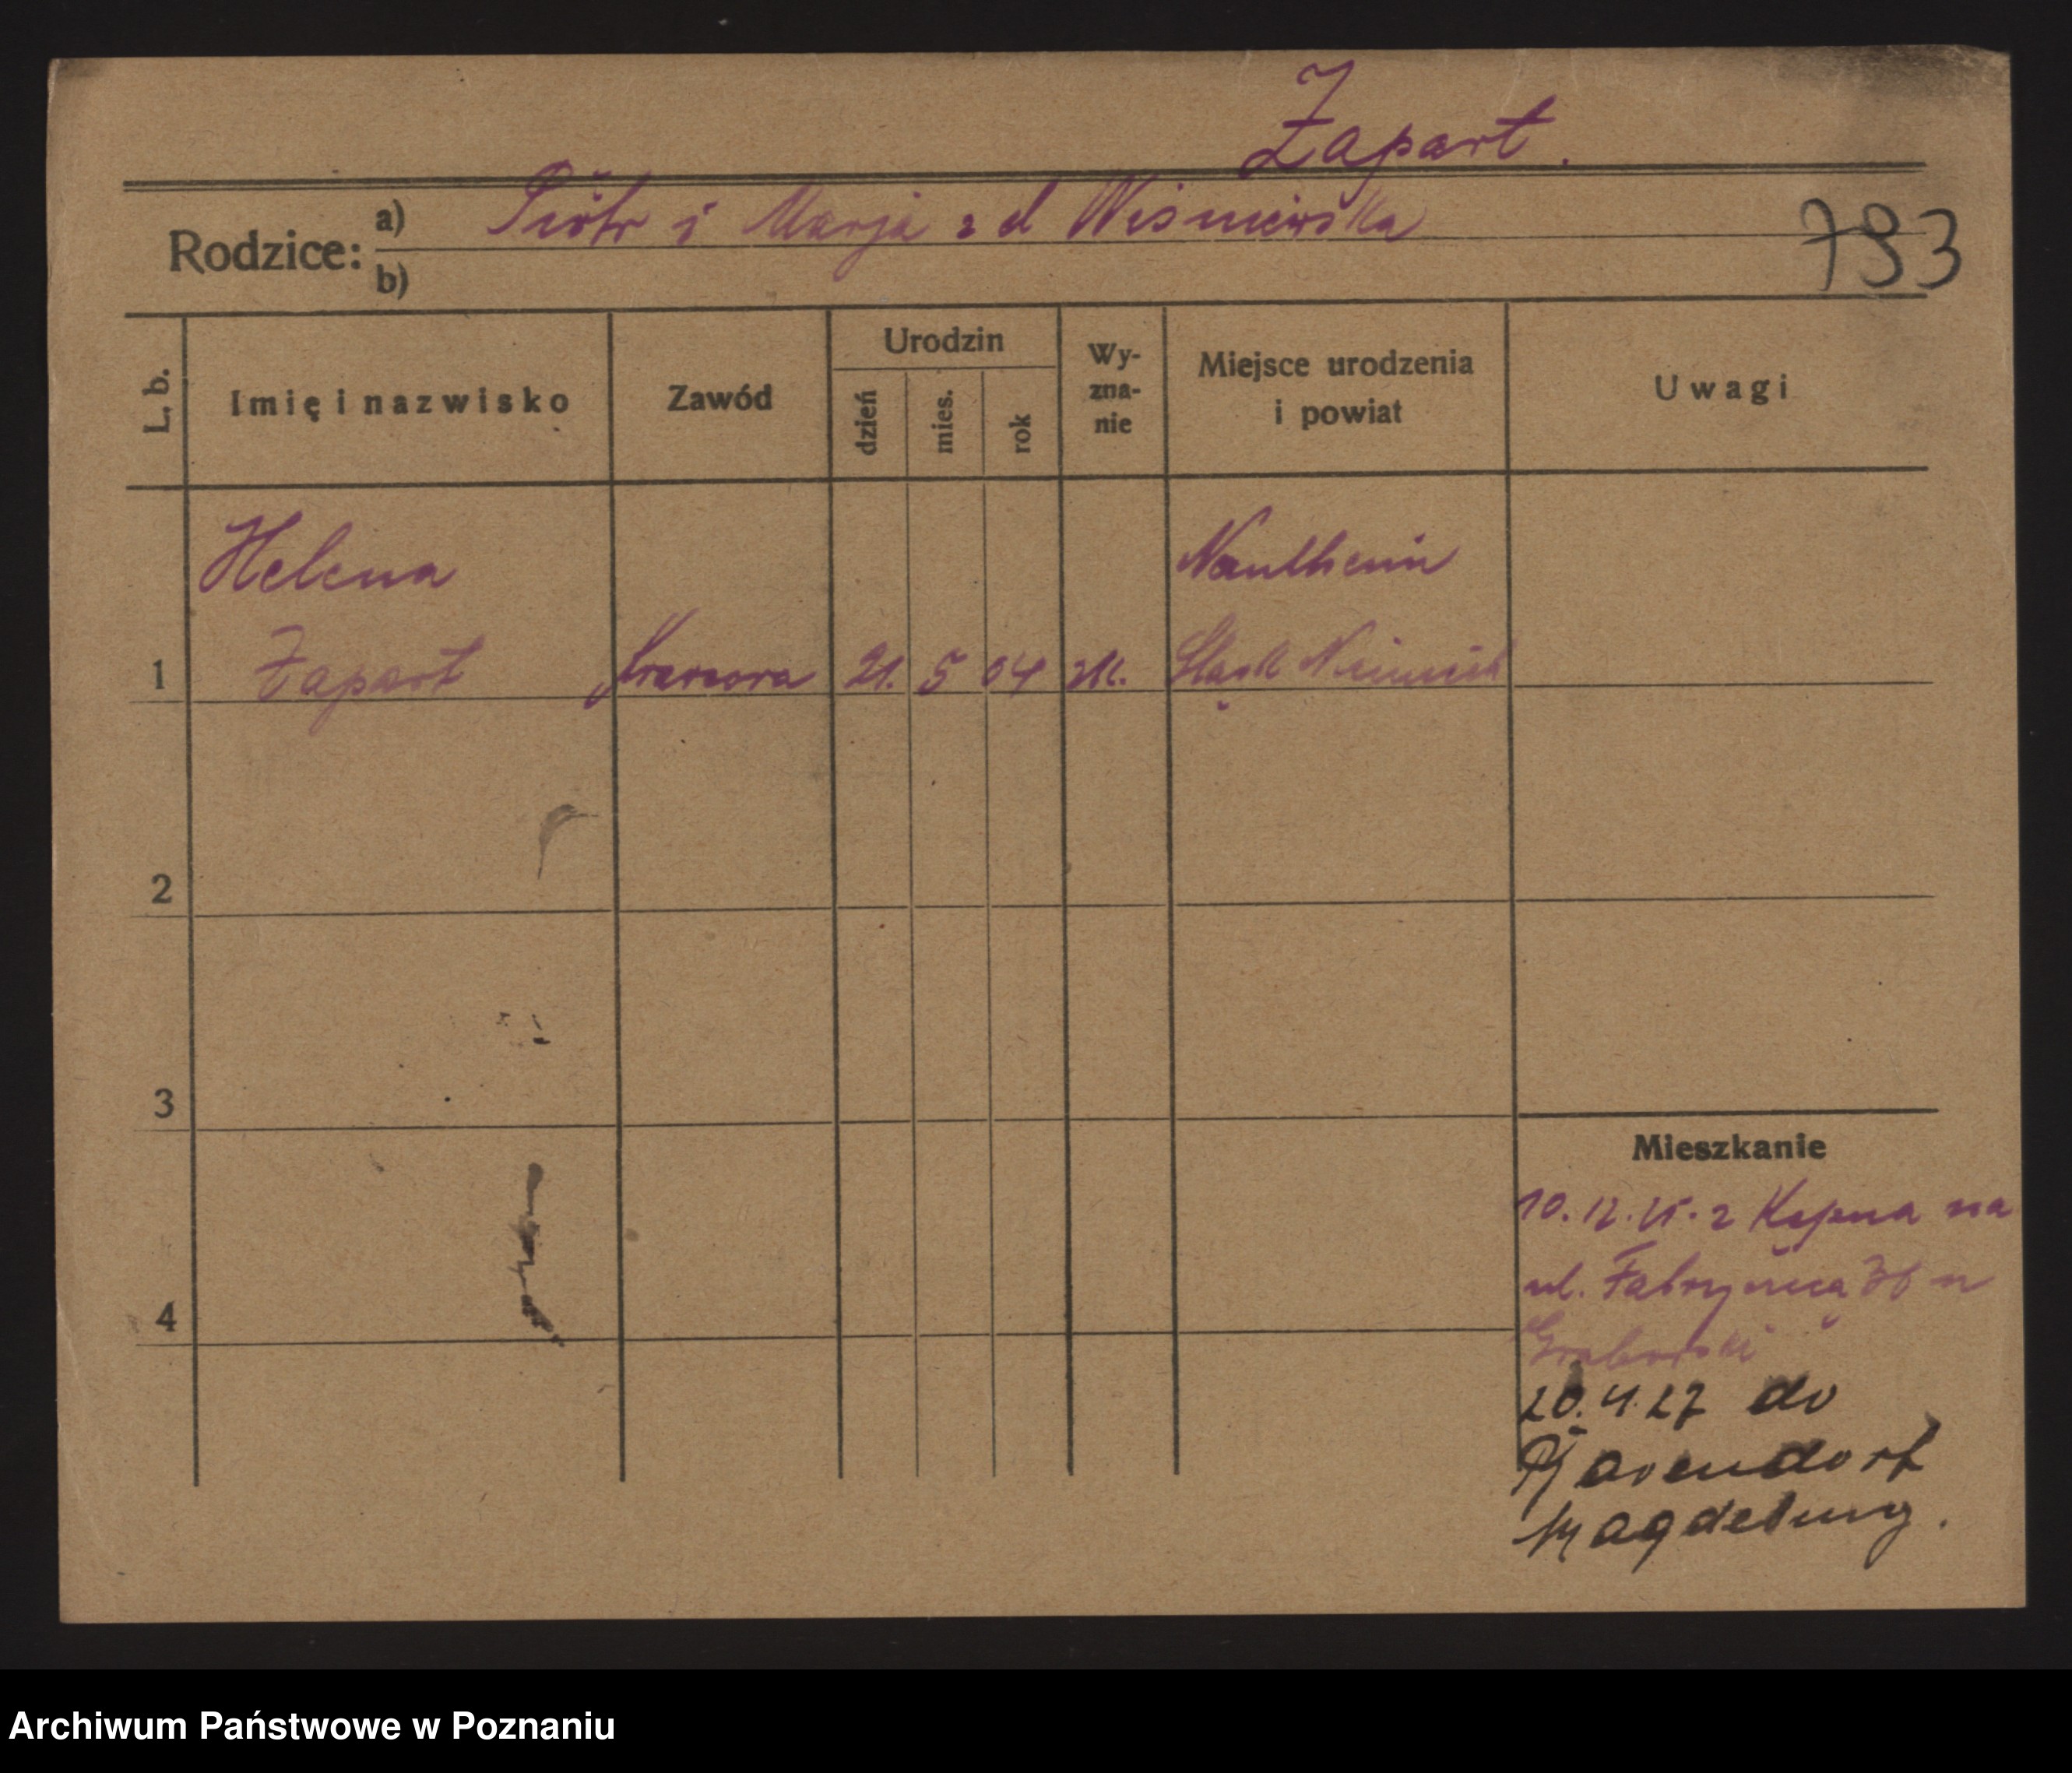 Zapart.
Rodzice: a) Piotr i Marja z d Wiśniewska
b)
793
L. b.
Imię i nazwisko
Zawód
Urodzin
dzień
mies.
rok
Wy-
zna-
nie
Miejsce urodzenia
i powiat
Uwagi
Helena
1 Zapart 21. 5 04 Śląsk Niemiecki
2
3
4
Mieszkanie
10. 12. 25. z Kępna na
ul. Fabryczną 36 u
Grabowski
20. 4. 27 do
Magdeburg.
Archiwum Państwowe w Poznaniu